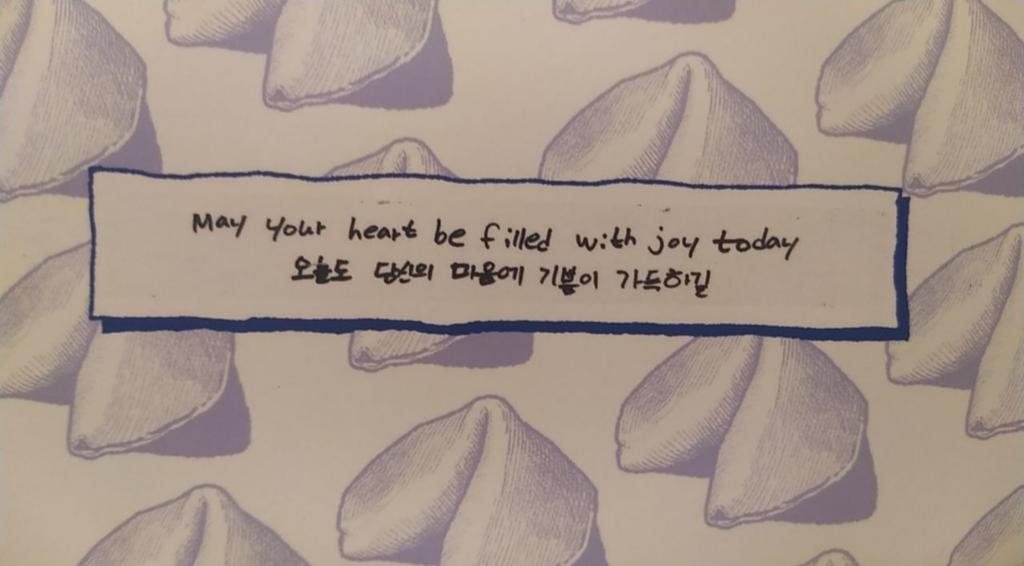 May your heart be filled with joy today
오늘도 당신의 마음에 기쁨이 가득하길